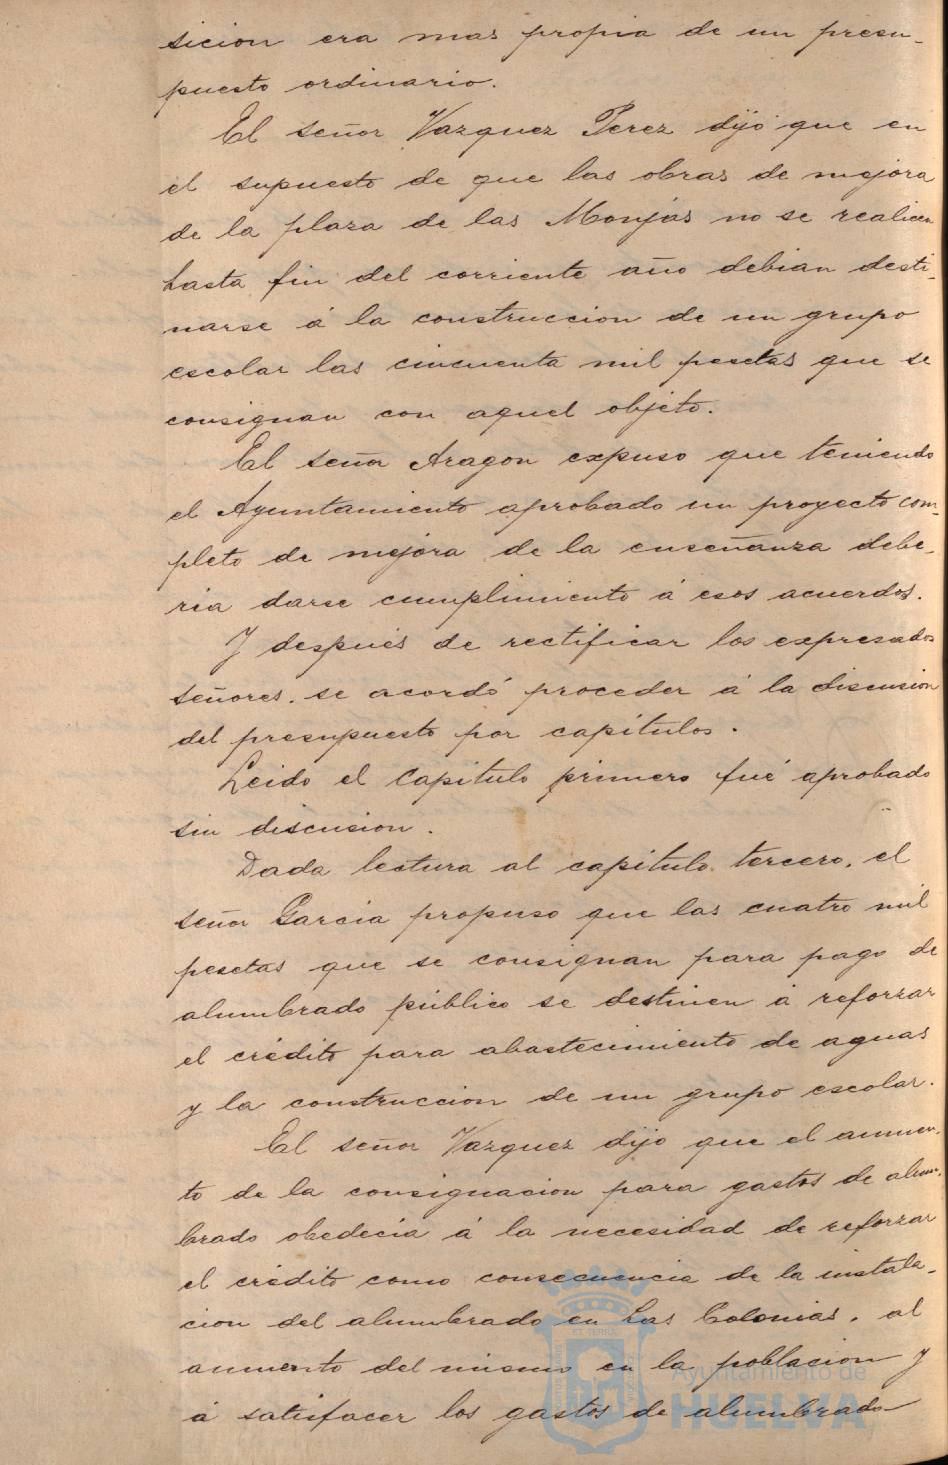 sicion era mas propia de un presu-
puesto ordinario.
El señor Vazquez Perez dijo que en
el supuesto de que las obras de mejora
de la plaza de las Monjas no se realicen
hasta fin del corriente año debian desti-
narse á la construccion de un grupo
escolar las cincuenta mil pesetas que se
consignan con aquel objeto.
El señor Aragon expuso que teniendo
el Ayuntamiento aprobado un proyecto com-
pleto de mejora de la enseñanza debe-
ria darse cumplimiento á esos acuerdos.
Y después de rectificar los expresados
señores. se acordó proceder á la discusion
del presupuesto por capitulos.
Leido el Capitulo primero fué aprobado
sin discusion.
Dada lectura al capitulo tercero, el
señor Garcia propuso que las cuatro mil
pesetas que se consignan para pago de
alumbrado público se destinen á reforzar
el crédito para abastecimiento de aguas
y la construccion de un grupo escolar.
El señor Vazquez dijo que el aumen-
to de la consignacion para gastos de alum-
brado obedecia á la necesidad de reforzar
el crédito como consecuencia de la instala-
cion del alumbrado en Las Colonias, al
aumento del mismo en la poblacion y
á satisfacer los gastos de alumbrado
Ayuntamiento de
HUELVA